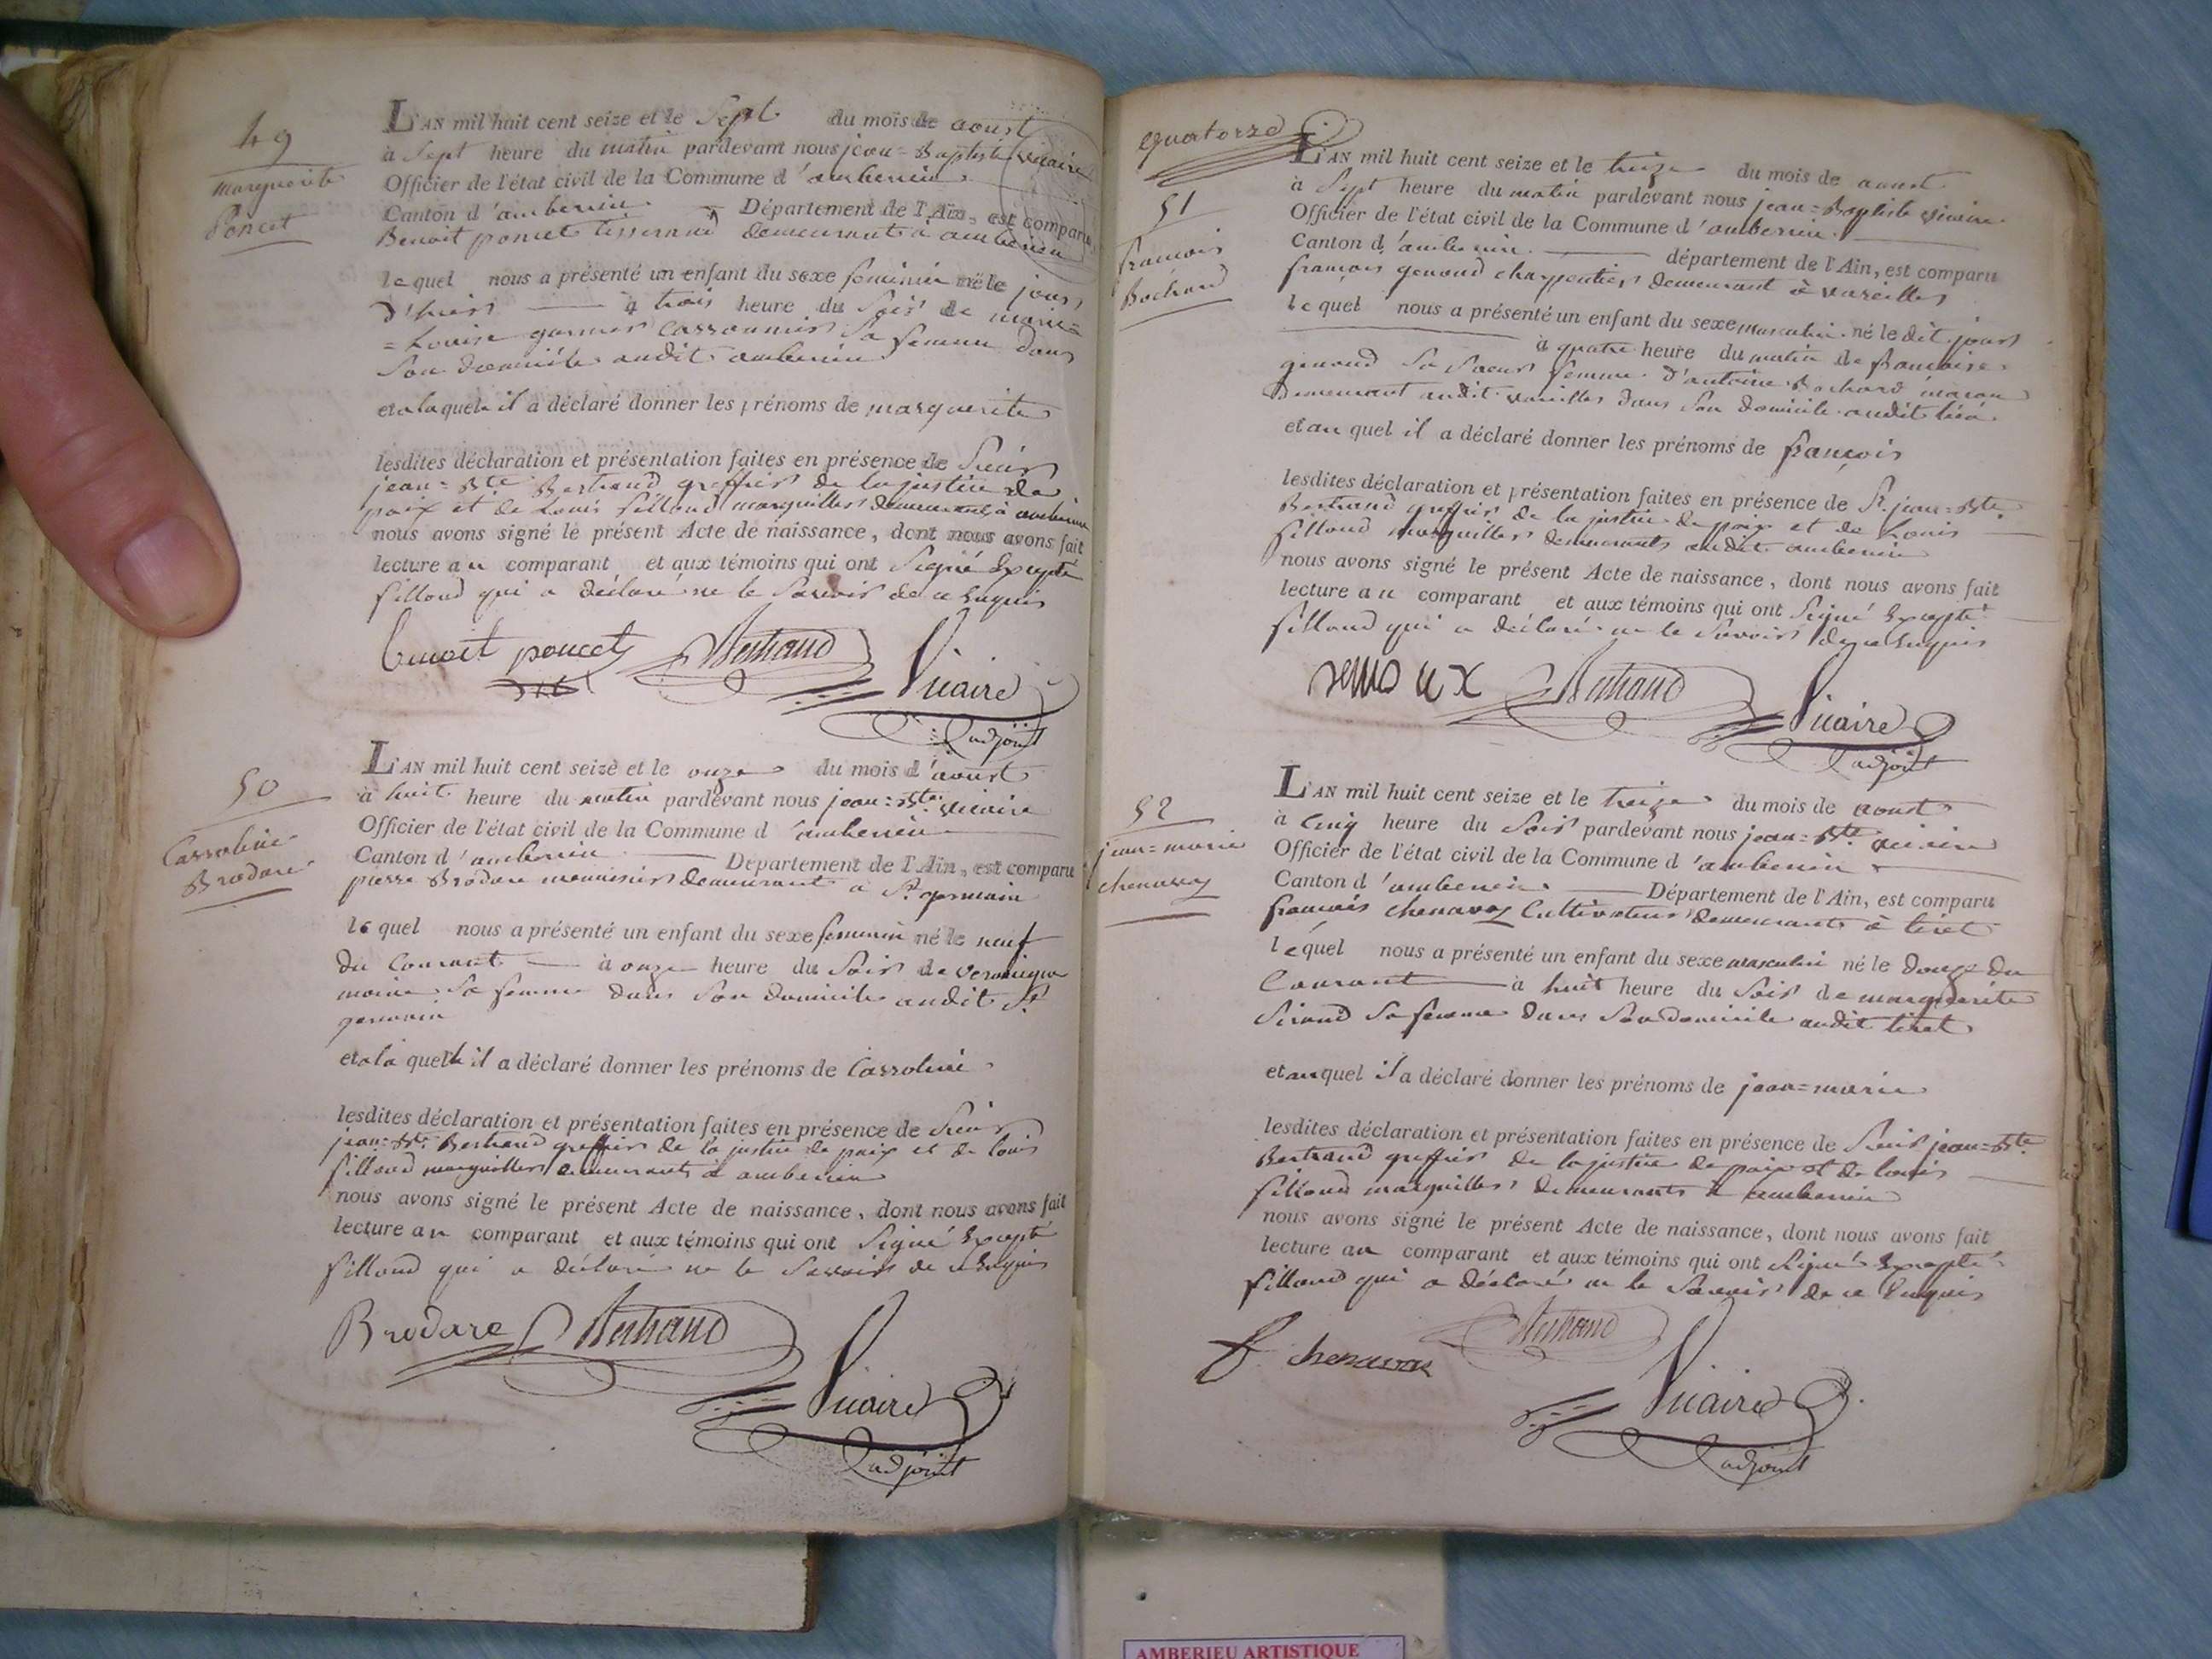 49
marguerite
Poncet
L'AN mil huit cent seize et le Sept du mois de aoust
à Sept heure du matin pardevant nous jean=Baptiste vicaire
Officier de l'état civil de la Commune d'amberieu
Canton d'amberieu Département de l'Ain, est comparu
Benoit poncet tisserand demeurant à amberieu
lequel nous a présenté un enfant du sexe feminin né le jour
d'hier à trois heure du Soir de marie=
=Louise garnier Cassonnier Sa femme dans
Son domicile audit amberieu
et a laquele il a déclaré donner les prénoms de marguerite
lesdites déclaration et présentation faites en présence de Sieur
jean=Bte Bertrand greffier de la justice de
paix et de Louis filloud marguillier demeurants à amberieu
nous avons signé le présent Acte de naissance, dont nous avons fait
lecture au comparant et aux témoins qui ont Signé Excepté
filloud qui a déclaré ne le Savoir de ce Enquis
benoit poncet Bertrand Vicaire
adjoint
50
Carroline
Brodare
L'AN mil huit cent seize et le onze du mois d'aoust
à huit heure du matin pardevant nous jean=Bte vicaire
Officier de l'état civil de la Commune d'amberieu
Canton d'amberieu Département de l'Ain, est comparu
pierre Brodare menuisier demeurant à St germain
lequel nous a présenté un enfant du sexe feminin né le neuf
du Courant à onze heure du Soir de veronique
moine Sa femme dans Son domicile audit St
germain
et a la quelle il a déclaré donner les prénoms de Carroline
lesdites déclaration et présentation faites en présence de Sieur
jean=Bte Bertrand greffier de la justice de paix et de louis
filloud marguillier demeurants à amberieu
nous avons signé le présent Acte de naissance, dont nous avons fait
lecture au comparant et aux témoins qui ont Signé Excepté
filloud qui a déclaré ne le Savoir de ce Enquis
Brodare Bertrand
Vicaire
adjoint
quatorze
51
francois
Bochard
L'AN mil huit cent seize et le treize du mois de aoust
à Sept heure du matin pardevant nous jean=Baptiste vicaire
Officier de l'état civil de la Commune d'amberieu
Canton d'amberieu département de l'Ain, est comparu
françois genoud charpentier demeurant à vareilles
lequel nous a présenté un enfant du sexe masculin né le dit jour
à quatre heure du matin de francoise
genoud Sa Soeur femme d'antoine Bochard maçon
Demeurant audit vareilles dans Son domicile audit lieu
et au quel il a déclaré donner les prénoms de françois
lesdites déclaration et présentation faites en présence de Sr. jean=Bte
Bertrand greffier de la justice de paix et de Louis
filloud marguillier demeurants audit amberieu
nous avons signé le présent Acte de naissance, dont nous avons fait
lecture au comparant et aux témoins qui ont Signé Excepté
filloud qui a déclaré ne le Savoir de ce Enquis
Bertrand Vicaire
adjoint
52
jean=marie
chenavoy
L'AN mil huit cent seize et le treize du mois de aoust
à Cinq heure du Soir pardevant nous jean=Bte vicaire
Officier de l'état civil de la Commune d'amberieu
Canton d'amberieu Département de l'Ain, est comparu
françois chenavoy Cultivateur demeurant à tiret
lequel nous a présenté un enfant du sexe masculin né le Douze du
Courant à huit heure du Soir de marguerite
Sirand Sa femme dans Son domicile audit tiret
et au quel il a déclaré donner les prénoms de jean=marie
lesdites déclaration et présentation faites en présence de Sieur jean=Bte
Bertrand greffier de la justice de paix et de louis
filloud marguillier demeurants à amberieu
nous avons signé le présent Acte de naissance, dont nous avons fait
lecture au comparant et aux témoins qui ont Signé Excepté
filloud qui a déclaré ne le Savoir de ce Enquis
f chenavoy Bertrand
Vicaire
adjoint
AMBERIEU ARTISTIQUE